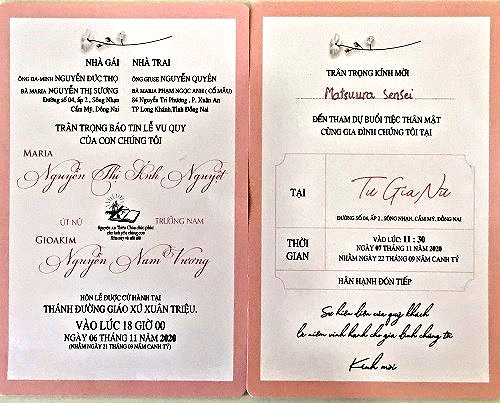 NHÀ GÁI NHÀ TRAI
ÔNG ĐA-MINH NGUYỄN ĐỨC THỌ
BÀ MARIA NGUYỄN THỊ SƯƠNG
Đường số 04, ấp 2, Sông Nhạn
Cẩm Mỹ, Đồng Nai
ÔNG GIUSE NGUYỄN QUYỀN
BÀ MARIA PHẠM NGỌC ANH ( CỐ MẪU)
84 Nguyễn Tri Phương, P. Xuân An
TP Long Khánh, Tỉnh Đồng Nai
TRÂN TRỌNG BÁO TIN LỄ VU QUY
CỦA CON CHÚNG TÔI
MARIA
Nguyễn Thị Ánh Nguyệt
ÚT NỮ
TRƯỞNG NAM
Nguyện xin Thiên Chúa chúc phúc
cho tình yêu chúng con
Hôm nay và mãi mãi
GIOAKIM
Nguyễn Nam Vương
HÔN LỄ ĐƯỢC CỬ HÀNH TẠI
THÁNH ĐƯỜNG GIÁO XỨ XUÂN TRIỆU.
VÀO LÚC 18 GIỜ 00
NGÀY 06 THÁNG 11 NĂM 2020
(NHẰM NGÀY 21 THÁNG 09 NĂM CANH TÝ)
TRÂN TRỌNG KÍNH MỜI
Matsuura Sensei
ĐẾN THAM DỰ BUỔI TIỆC THÂN MẬT
CÙNG GIA ĐÌNH CHÚNG TÔI TẠI
TẠI
Tư Gia Nữ
ĐƯỜNG SỐ 04, ẤP 2, SÔNG NHẠN, CẨM MỸ, ĐỒNG NAI
THỜI
GIAN
VÀO LÚC: 11 : 30
NGÀY 07 THÁNG 11 NĂM 2020
NHẰM NGÀY 22 THÁNG 09 NĂM CANH TÝ
HÂN HẠNH ĐÓN TIẾP
Sự hiện diện của quý khách
là niềm vinh hạnh cho gia đình chúng tôi
Kính mời